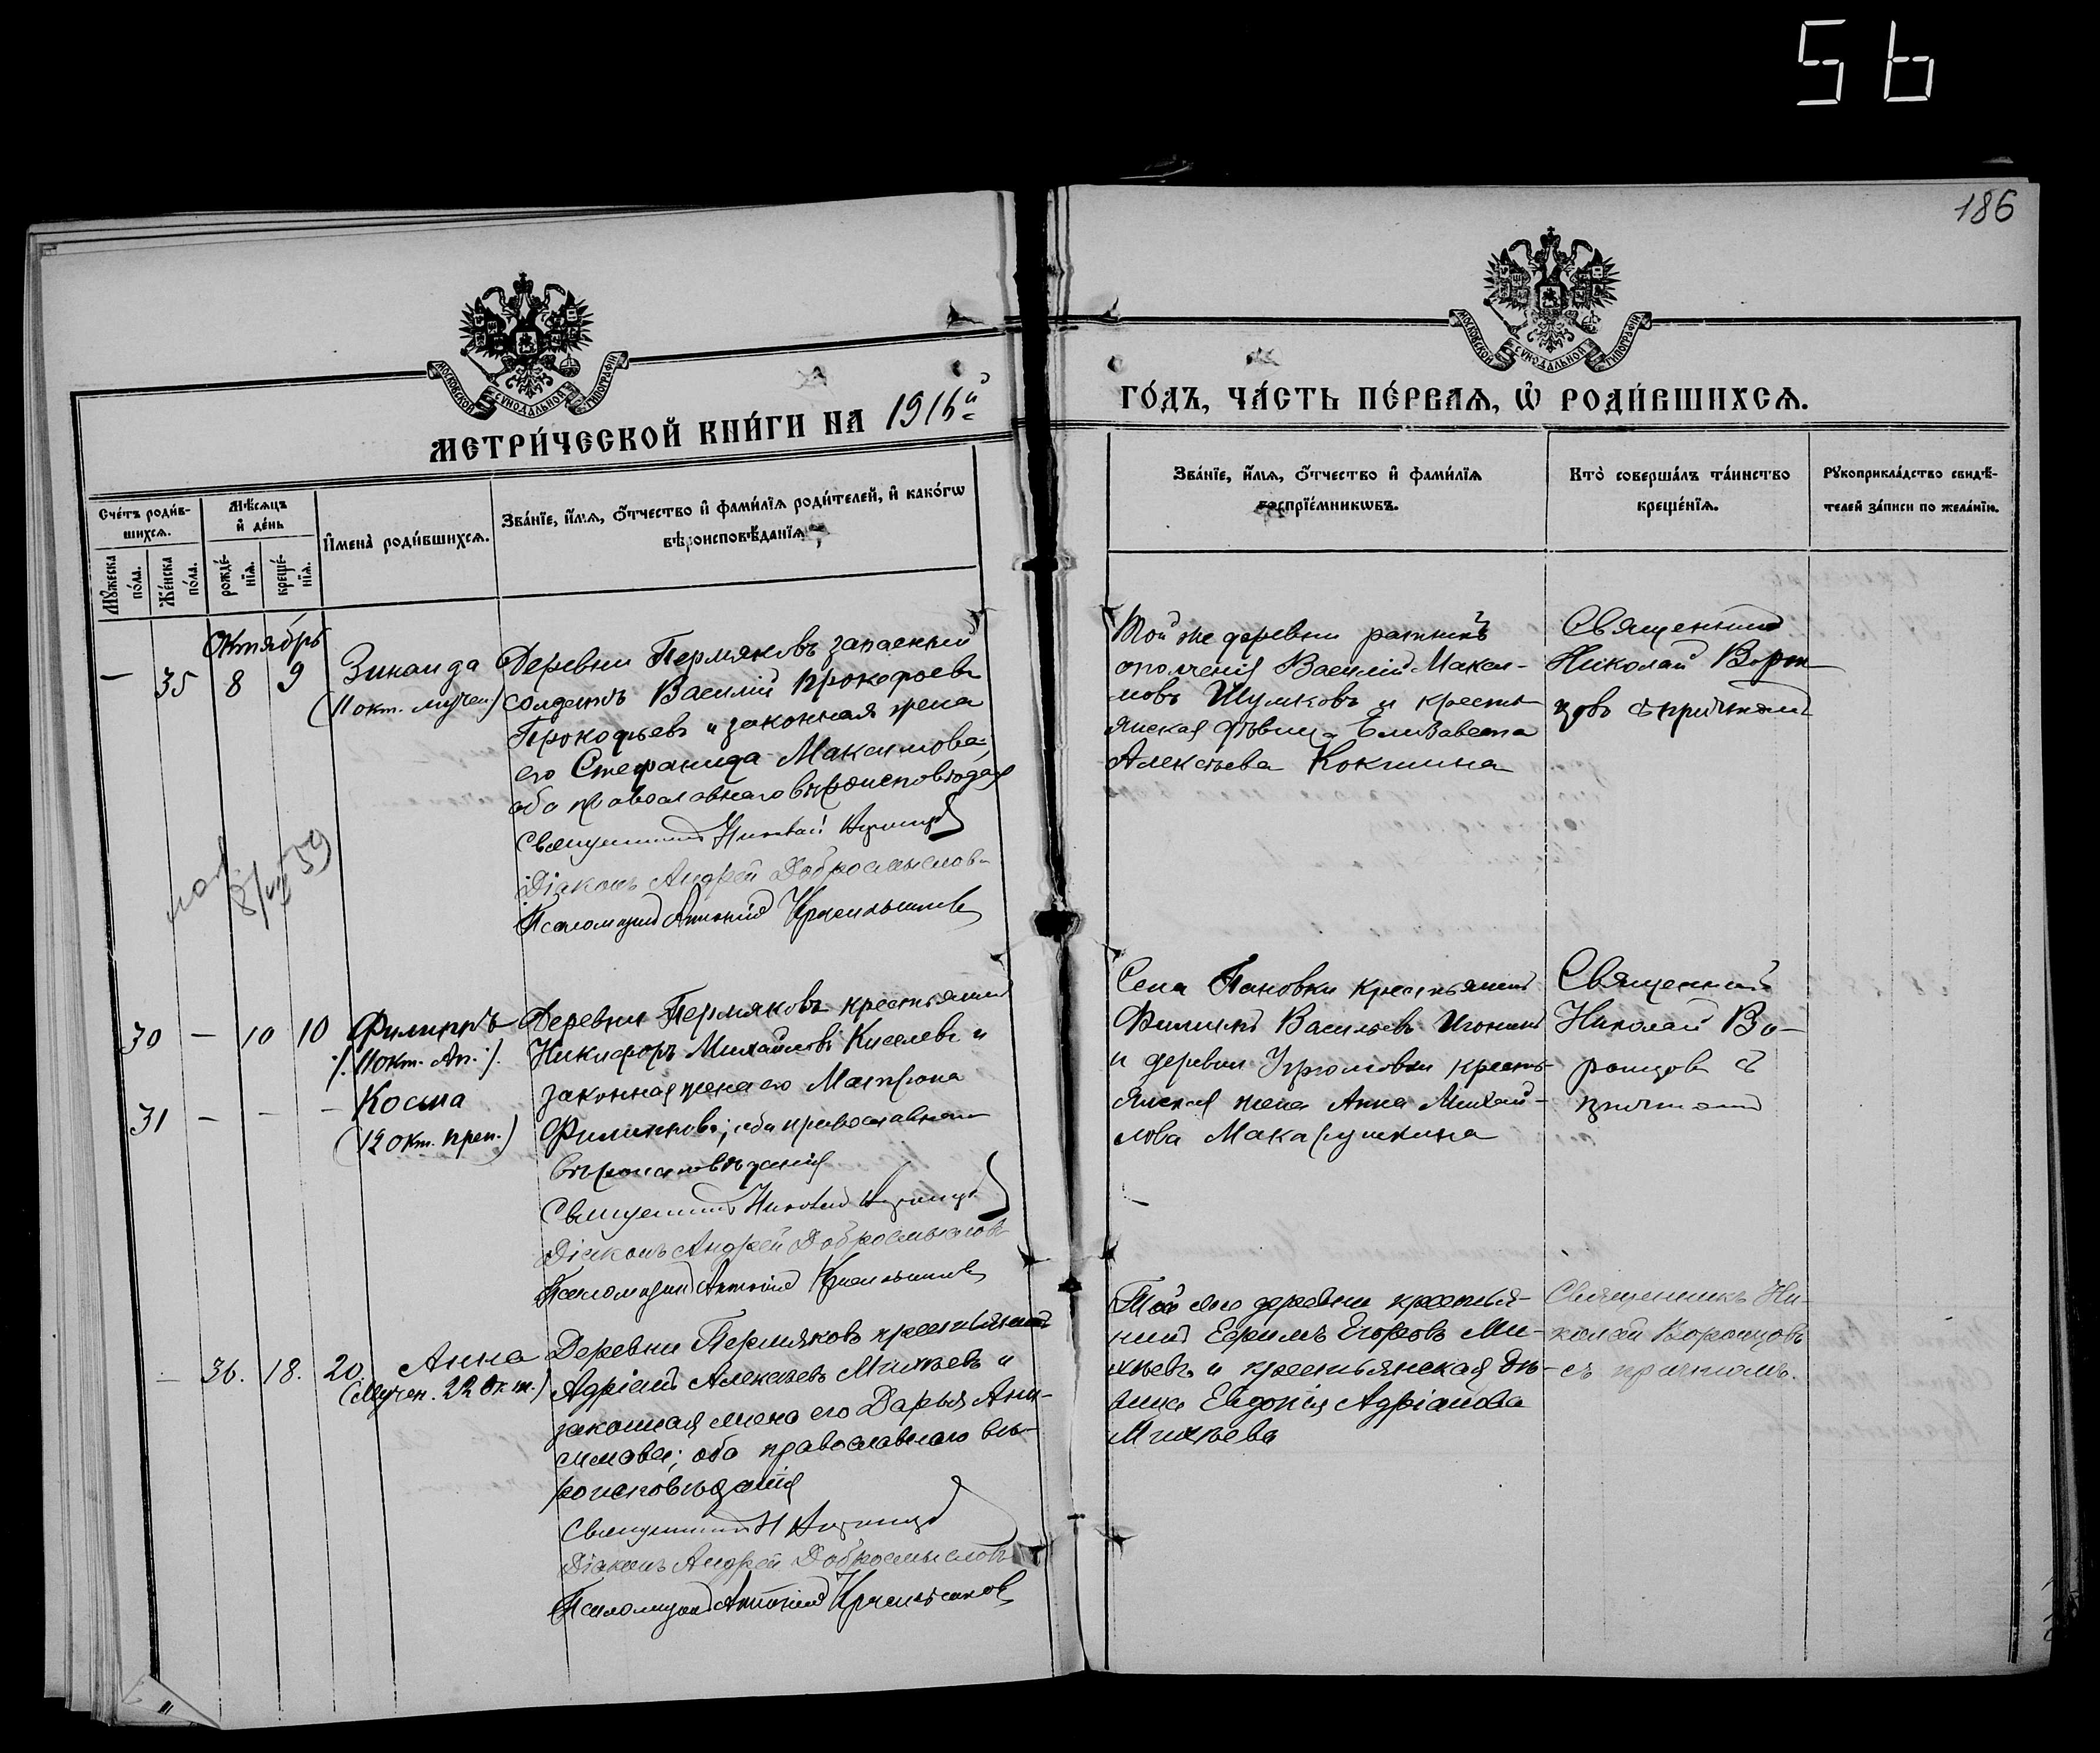 56
186
МОСКОВСКОЙ СѴНОДАЛЬНОЙ ТИПОГРАФІИ
МОСКОВСКОЙ СѴНОДАЛЬНОЙ ТИПОГРАФІИ
МЕТРИ́ЧЕСКОЙ КНИ́ГИ НА 1916й
ГО́ДЪ, ЧА́СТЬ ПЕ́РВАѦ, Ѡ҆ РОДИ́ВШИХСѦ.
Сче́тъ роди́в-
шихсѧ.
Мꙋ́жеска по́ла.
Же́нска по́ла.
Мѣ́сѧцъ
и҆ де́нь
рожде́-нїѧ.
креще́-нїѧ.
И҆мена̀ роди́вшихсѧ.
Зва́нїе, и҆́мѧ, ѻ҆́тчество и҆ фами́лїѧ роди́телей, и҆ како́гѡ
вѣроисповѣ́данїѧ.
Зва́нїе, и҆́мѧ, ѻ҆́тчество и҆ фами́лїѧ
воспрїе́мникѡвъ.
Кто̀ соверша́лъ та́инство
креще́нїѧ.
Рꙋкоприкла́дство свидѣ́-
телей за́писи по жела́нїю.
Октябрь
— 35 8 9 Зинаида
(11 окт. мучен.)
Деревни Пермяковъ запасный
солдатъ Василій Прокофьевъ
Прокофьевъ и законная жена
его Стефанида Максимова;
оба православнаго вѣроисповѣданія
Священникъ Николай Воронцовъ
Діаконъ Андрей Добросмысловъ
Псаломщикъ Антоній Красильниковъ
Той же деревни ратникъ
ополченія Василій Макси-
мовъ Шумковъ и кресть-
янская дѣвица Елизавета
Алексѣева Кокшина
Священникъ
Николай Ворон-
цовъ съ причтомъ
8/VII 39
30 — 10 10 Филиппъ
/. 11 окт. Ап. ./.
31 — — — Косма
(12 окт. преп.)
Деревни Пермяковъ крестьянинъ
Никифоръ Михайловъ Киселевъ и
законная жена его Матрона
Филиппова; оба православнаго
вѣроисповѣданія
Священникъ Николай Воронцовъ
Діаконъ Андрей Добросмысловъ
Псаломщикъ Антоній Красильниковъ
Села Пановки крестьянинъ
Филиппъ Васильевъ Игонинъ
и деревни кресть-
янская жена Анна Михай-
лова Макарушкина
Священникъ
Николай Во-
ронцовъ съ
причтомъ
— 36. 18. 20. Анна
(Мучен. 22 Окт.)
Деревни Пермяковъ крестьянинъ
Адріанъ Алексѣевъ Михѣевъ и
законная жена его Дарья Ани-
симова; оба православнаго вѣ-
роисповѣданія
Священникъ Н Воронцовъ
Діаконъ Андрей Добросмысловъ
Псаломщикъ Антоній Красильниковъ
Той же деревни крестья-
нинъ Ефимъ Егоровъ Ми-
хѣевъ и крестьянская дѣ-
вица Евдокія Адріанова
Михѣева
Священникъ Ни-
колай Воронцовъ
съ причтомъ.